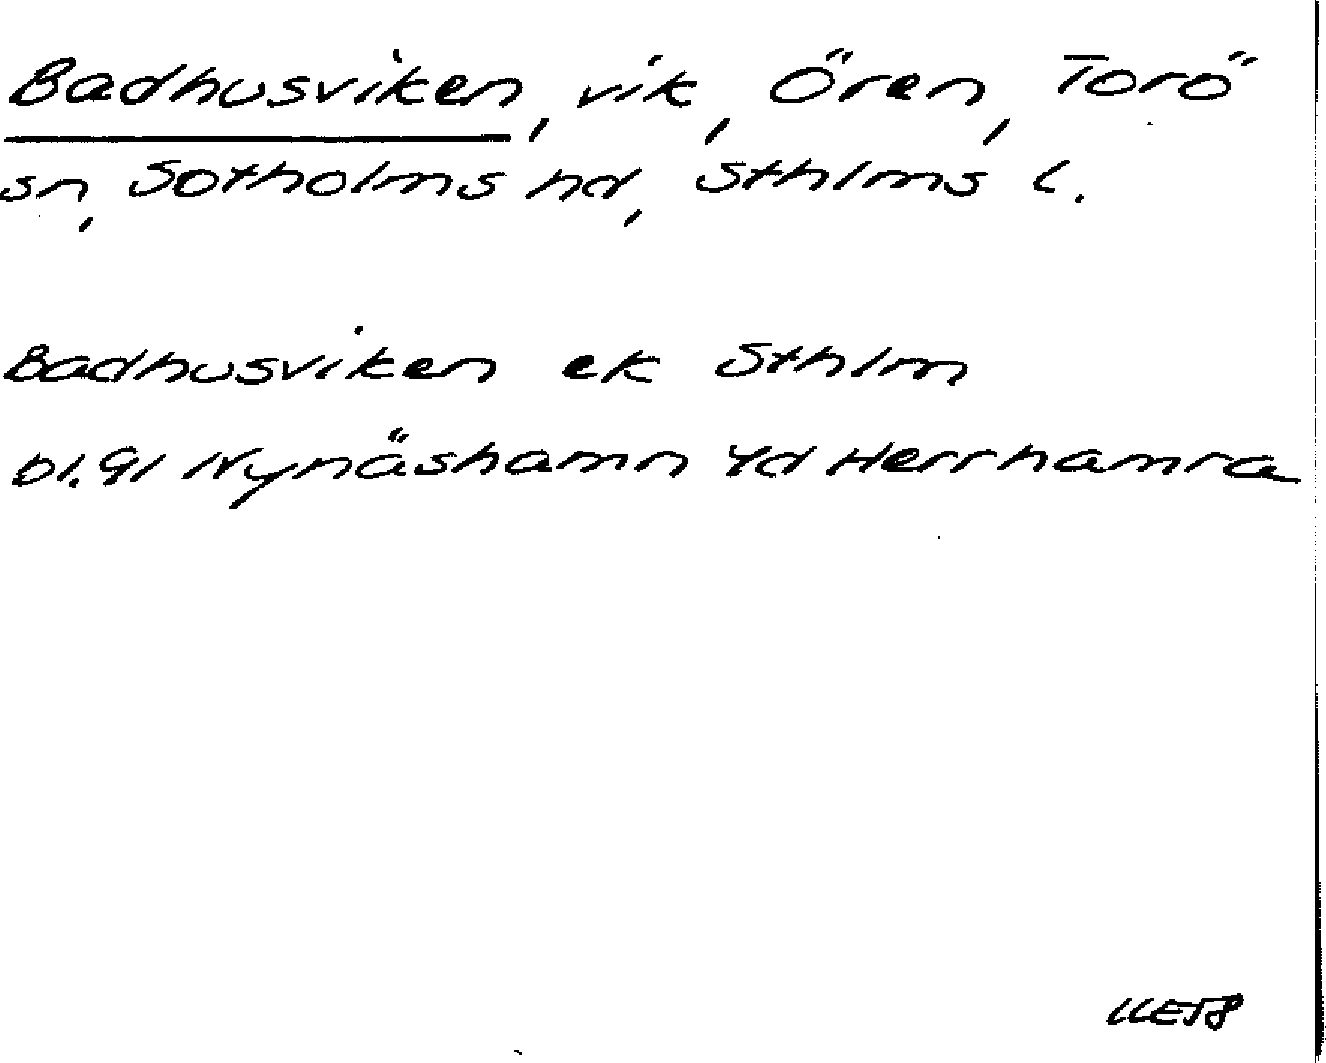 Badhusviken, vik, Ören, Torö
sn, Sotholms hd, Sthlms l.
Badhusviken ek Sthlm
bl. 91 Nynäshamn Yd Herrhamra